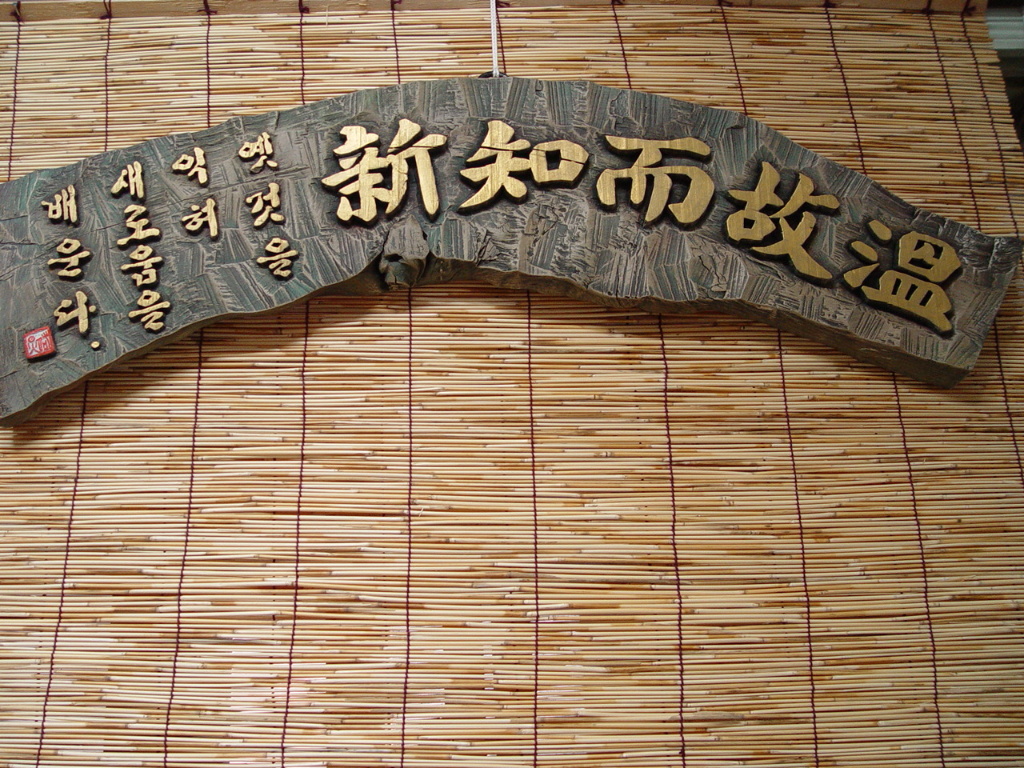 溫故而知新
옛것을
익혀
새로움을
배운다.